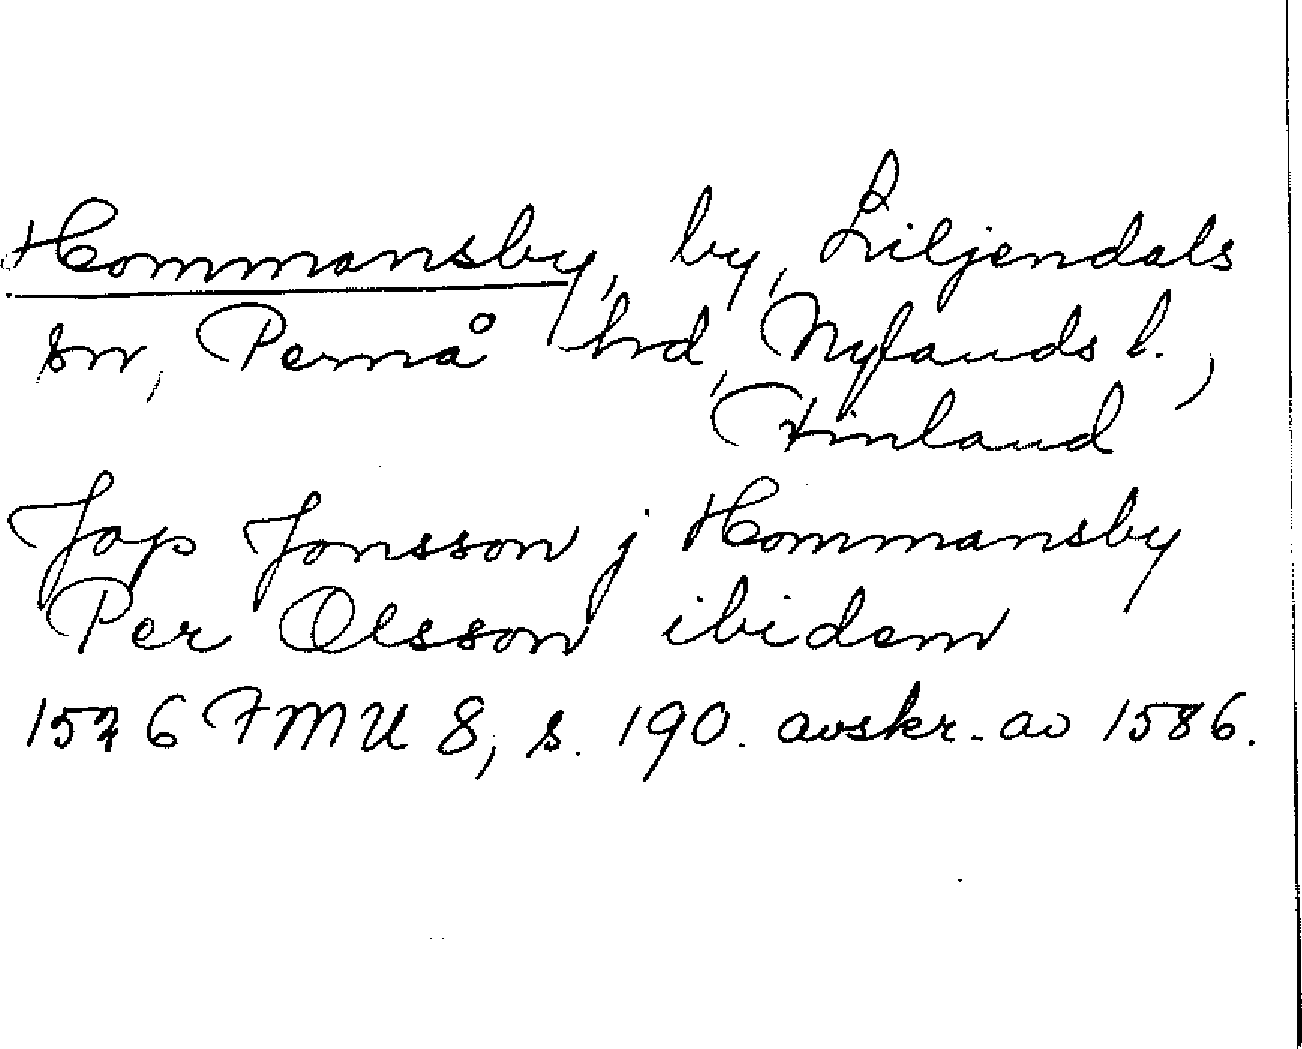 Hommansby, by, Liljendals
sn, Pernå hrd, Nylands l.,
Finland
Jop Jonsson j Hommansby
Per Olsson ibidem
1526 FMU 8, s. 190. avskr. av 1586.